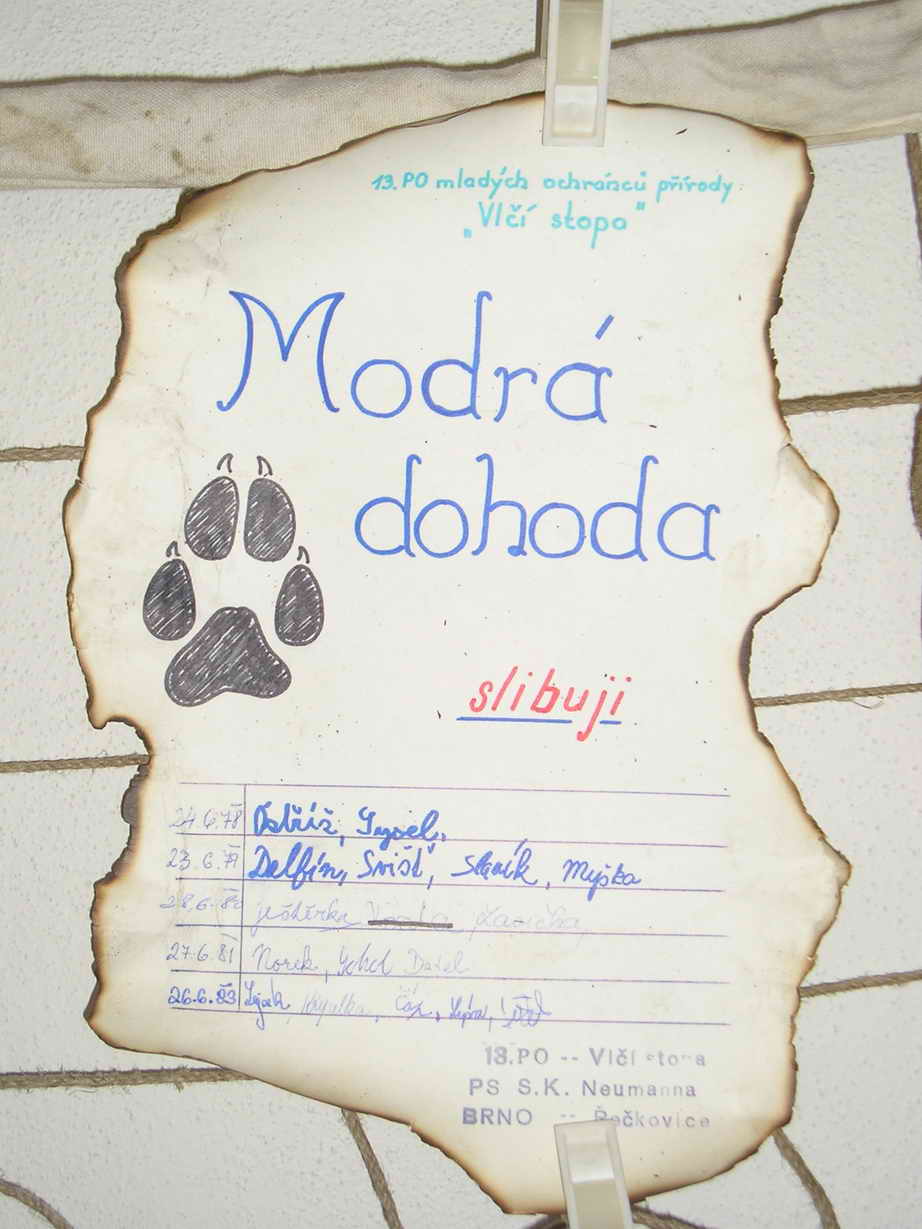 13. PO mladých ochránců přírody
„Vlčí stopa"
Modrá
dohoda
slibuji
24.6.78 Ostříž, Sysel,
23.6.79 Delfín, Svišť, Slavík, Myška
28.6.80 ještěrka
27.6.81 Norek, Sokol
26.6.83 Čáp,
13.PO -- Vlčí stopa
PS S.K. Neumanna
BRNO -- Řečkovice